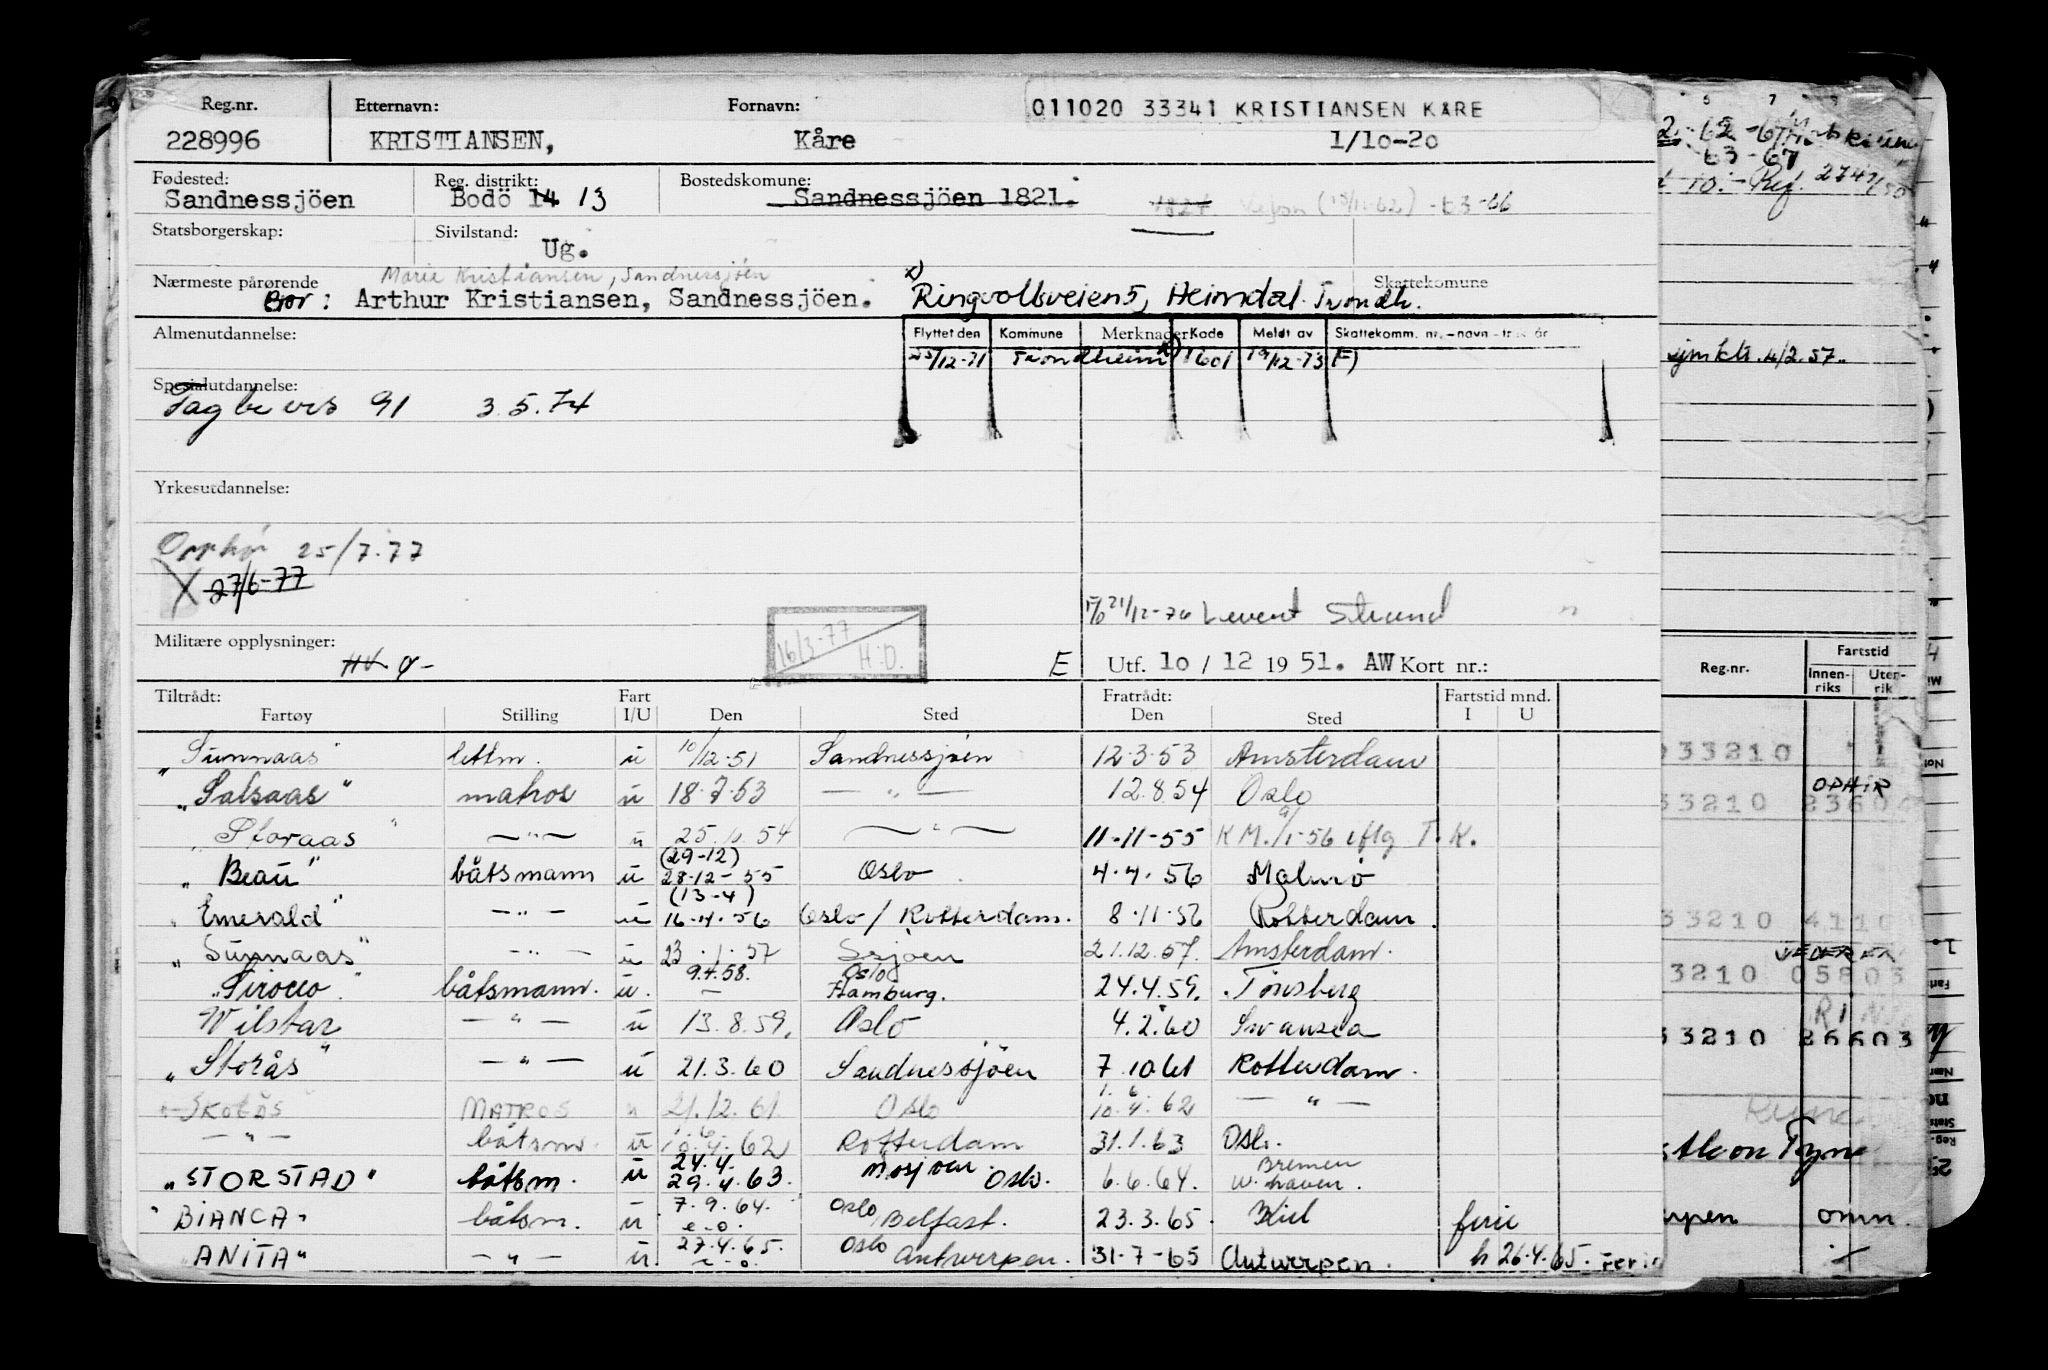 Reg.nr. Etternavn: Fornavn: 011020 33341 KRISTIANSEN KÅRE
228996 KRISTIANSEN, Kåre 1/10-20
Fødested: Reg. distrikt: Bostedskomune:
Sandnessjöen Bodö 14 13 Sandnessjöen 1821. 1827 (15/11-62) -63-66
Statsborgerskap: Sivilstand: Ug.
Marie Kristiansen, Sandnessjöen
Nærmeste pårørende x) Skattekomune
Bor: Arthur Kristiansen, Sandnessjöen. Ringvollsveien 5, Heimdal Trondh.
Almenutdannelse: Flyttet den Kommune Merknader Kode Meldt av Skattekomm. nr. - navn - år
/12-71 Trondheim x) 1601 19/12-73 F)
Spesialutdannelse:
Fagbevis 91 3.5.74
Yrkesutdannelse:
Opphør 25/7.77
X 27/6-77
21/12-76 Levert Strand
16/3-77 H.D.
Militære opplysninger: HV E Utf. 10 / 12 1951. AW Kort nr.:
Tiltrådt: Fart Fratrådt: Fartstid mnd.
Fartøy Stilling I/U Den Sted Den Sted I U
"Sunnaas" lettm. u 10/12-51 Sandnessjöen 12-3-53 Amsterdam
"Salsaas" matros u 18-7-53 — " — 12.8.54 Oslo
"Storaas" — " — u 25.10.54 — " — 11-11-55 K M. /1-56 iflg T.K.
"Beau" båtsmann u (29-12) 28-12-55 Oslo 4-4-56 Malmö
"Emerald" — " — u (13-4) 16-4-56 Oslo / Rotterdam. 8-11-56 Rotterdam.
"Sunnaas" — " — u 23.1.57 Ssjöen 21.12.57. Amsterdam.
"Sirocco" båtsmann. u. 9.4.58. — Oslo Hamburg. 24.4.59. Tönsberg
Wilstar — " — u 13.8.59. Oslo 4.2.60 Swansea
"Storås" — " — u 21.3.60 Sandnessjöen 7.10.61 Rotterdam.
Skotås MATROS u 21.12.61 Oslo 1.6. 10.4.62 — " —
— " — båtsm. u 1.6. 10.4.62 Rotterdam 31.1.63 Oslo.
"STORSTAD" båtsm. u 24.4. 29.4.63. Mosjøen Oslo. 6.6.64. Bremen W.haven.
"BIANCA" båtsm. u 7.9.64. e.o. Oslo Belfast. 23.3.65. Kiel ferie
"ANITA" — " — u. 27.4.65. e.o. Oslo Antwerpen. 31-7-65 Antwerpen. h 26.4.65. Ferie
63-67
10.- Ref. 2747/50
4/2.57.
Reg.nr. Fartstid
Innen-riks Uten-rik
33210
OPHIR
33210
33210
3210 05803
33210 26603
Tyne
omm.